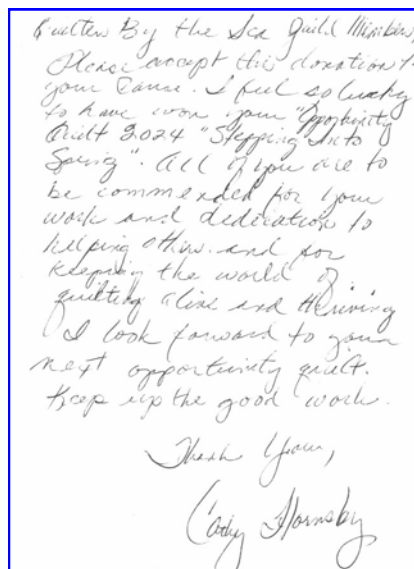 Quilters By the Sea Guild Members,
Please accept this donation to
your Cause. I feel so lucky
to have won your "Opportunity
Quilt 2024 "Stepping Into
Spring". All of you are to
be commended for your
work and dedication to
helping others and for
keeping the world of
quilting alive and thriving
I look forward to your
next opportunity quilt.
Keep up the good work.
Thank You,
Cathy Hornsby